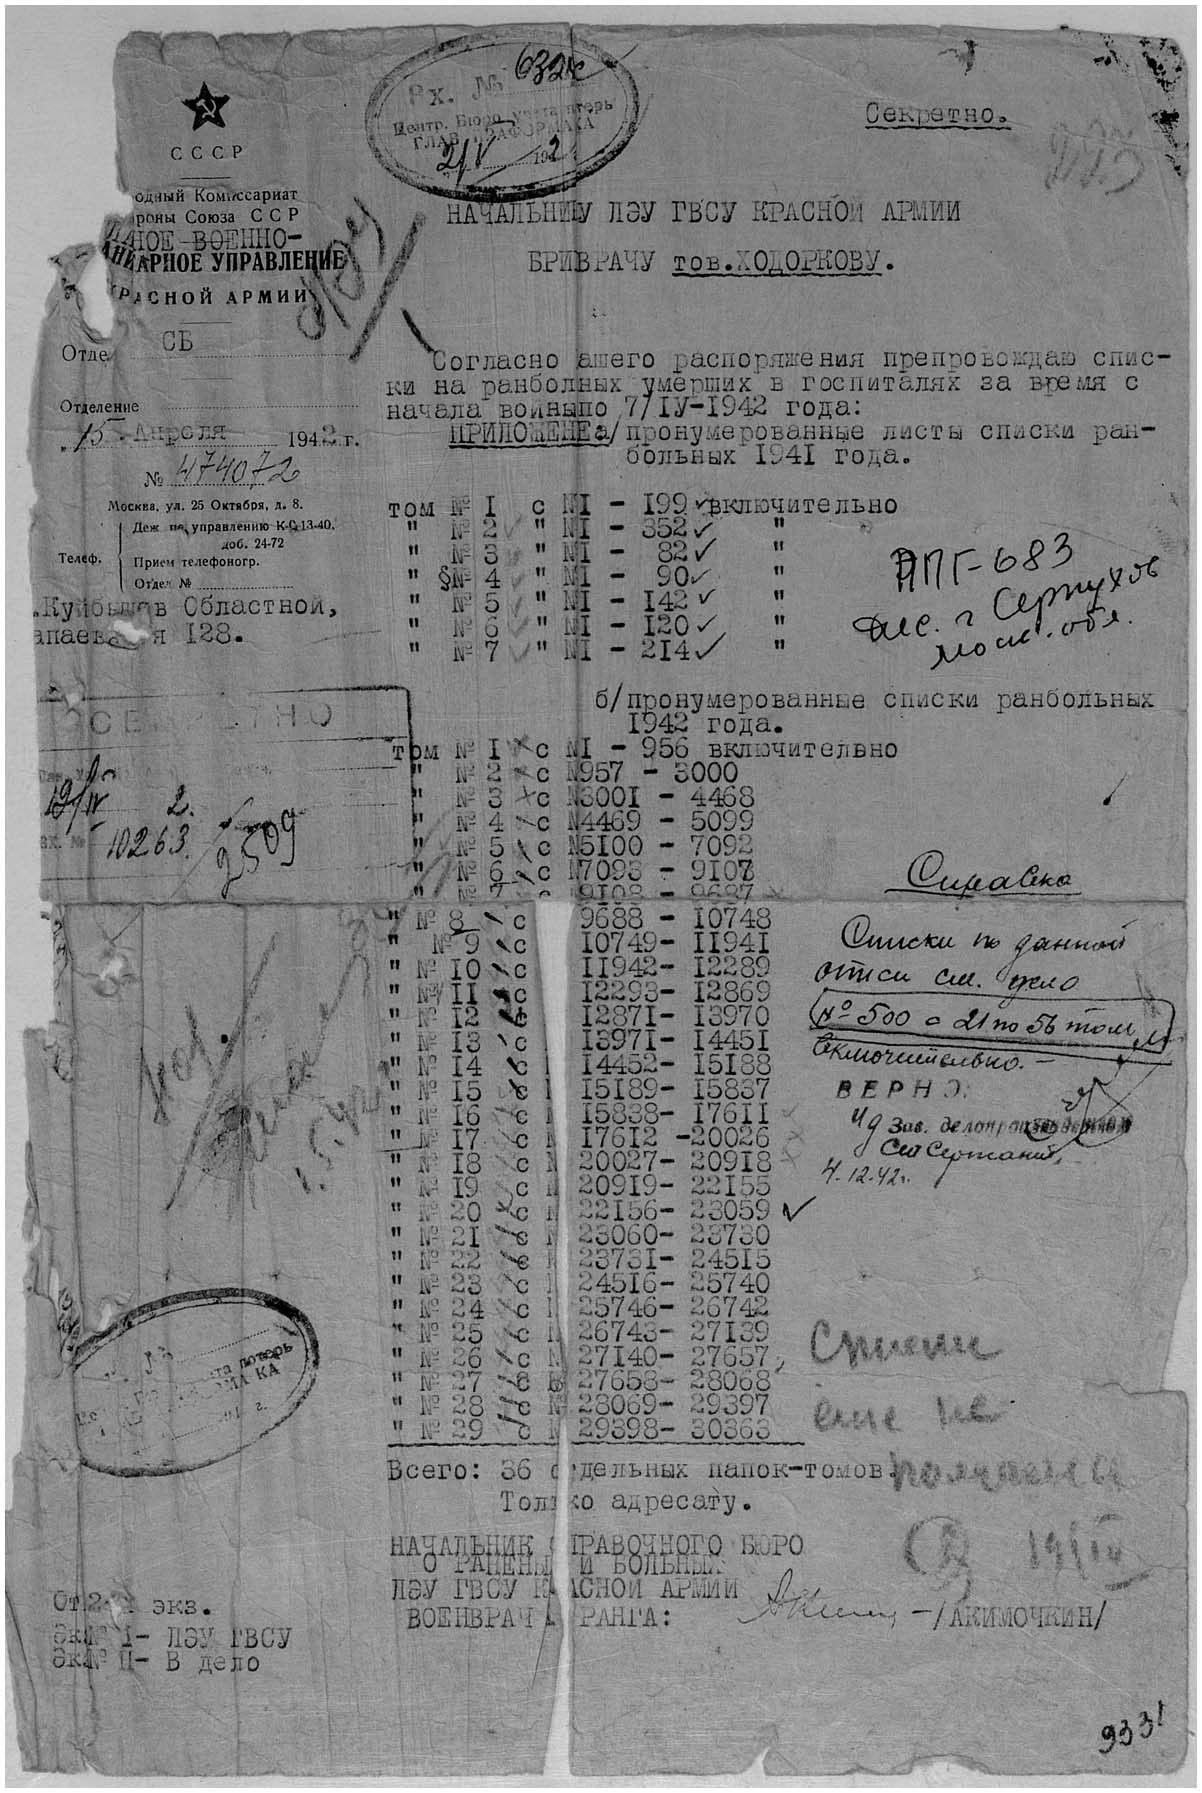 Вх. № 632с
Центр. Бюро учета птерь
21/V 1942
Секретно.
СССР
одный Комиссариат
ороны Союза ССР
НОЕ ВОЕННО-
АНИТАРНОЕ УПРАВЛЕНИЕ
КРАСНОЙ АРМИИ
Отде СБ
Отделение
"15" Апреля 1942 г.
№ 474072
Москва, ул. 25 Октября, д. 8.
Телеф.
Деж по управлению К-0-13-40.
доб. 24-72
Прием телефоногр.
Отдел №
.Куйбышов Областной,
апаевская 128.
НАЧАЛЬНИКУ ЛЭУ ГВСУ КРАСНОЙ АРМИИ
БРИВРАЧУ тов.ХОДОРКОВУ.
Согласно ашего распоряжения препровождаю спис-
ки на ранболных умерших в госпиталях за время с
начала войныпо 7/IУ-1942 года:
ПРИЛОЖЕНЕа/пронумерованные листы списки ран-
больных 1941 года.
том № 1 с №1 - 199 включительно
" № 2 " №1 - 352 "
" № 3 " №1 - 82 "
" §№ 4 " №1 - 90 "
" № 5 " №1 - 142 "
" № 6 " №1 - 120 "
" № 7 " №1 - 214 "
АПГ-683
г Серпухов
моск. обл.
б/пронумерованные списки ранбольных
1942 года.
том № 1 с №1 - 956 включительно
" № 2 с №957 - 3000
" № 3 с №3001 - 4468
" № 4 с №4469 - 5099
" № 5 с №5100 - 7092
" № 6 с №7093 - 9107
" № 7 с №9108 - 9687
" № 8 с 9688 - 10748
" № 9 с 10749- 11941
" № 10 с 11942- 12289
" № 11 с 12293- 12869
" № 12 с 12871- 13970
" № 13 с 13971- 14451
" № 14 с 14452- 15188
" № 15 с 15189- 15837
" № 16 с 15838- 17611
" № 17 с 17612 -20026
" № 18 с № 20027- 20918
" № 19 с № 20919- 22155
" № 20 с № 22156- 23059
" № 21 с № 23060- 23730
" № 22 с № 23731- 24515
" № 23 с № 24516- 25740
" № 24 с № 25746- 26742
" № 25 с № 26743- 27139
" № 26 с № 27140- 27657
" № 27 с № 27658- 28068
" № 28 с № 28069- 29397
" № 29 с № 29398- 30363
Всего: 36 отдельных папок-томов.
Только адресату.
19/IV 2.
вх. № 10263
2509
Справка
Списки по данной
описи см. дело
№ 500 с 21 по 56 том
включительно.-
ВЕРНО:
Зав. делопроизводством
4.12.42г.
Списки
еще не
получены
19/IV
НАЧАЛЬНИК СПРАВОЧНОГО БЮРО
О РАНЕНЫХ И БОЛЬНЫХ
ЛЭУ ГВСУ КРАСНОЙ АРМИИ
ВОЕНВРАЧ РАНГА: -/АКИМОЧКИН/
От 2-х экз.
Эк№ I- ЛЭУ ГВСУ
Эк№ II- В дело
9331